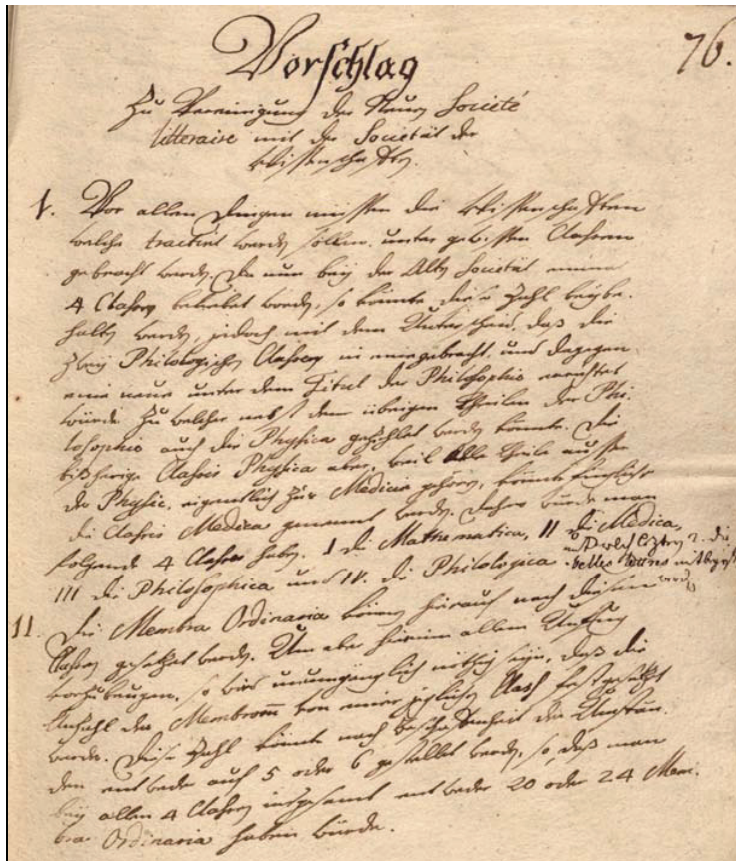 Vorschlag
76.
Zu Vereinigung der Neuen Societé
litteraire mit der Societät der
Wissenschafften.
I. Vor allen Dingen müssen die Wissenschafften
welche tractirt werden sollen, unter gewissen Classen
gebracht werden. Da nun bey der Alten Societät
4 Classen beliebet worden, so könnte diese Zahl beybe-
halten werden, jedoch mit dem Unterscheid, daß die
zwey Philologischen Classen in eine gebracht, und dagegen
eine neue unter dem Titul der Philosophie errichtet
würde, Zu welcher nebst den übrigen Theilen der Phi-
losophie auch die Physica gezehlet werden könnte. Die
bißherige Classis Physica aber, weil alle Theile ausser
der Physic, eigentlich zur Medicin gehören, könnte füglich
die Classis Medica genannt werden. Daher würde man
folgende 4 Classen haben. I die Mathematica, II die Medica,
III die Philosophica und IV. die Philologica
unter welch letztern die
belles lettres mit begriffen
werden
II. Die Membra Ordinaria können hierauf nach diesen
Classen gesetzet werden. Um aber hierinn allem Unfug
vorzubeugen, so wird unumgänglich nöthig seyn, daß die
Anzahl der Membrorum von einer jeglichen Class festgesetzt
werde. Diese Zahl könnte nach Beschaffenheit der Umstän-
den entweder auf 5 oder 6 gestellet werden, so, daß man
bey allen 4 Classen insgesamt entweder 20 oder 24 Mem-
bra Ordinaria haben würde.